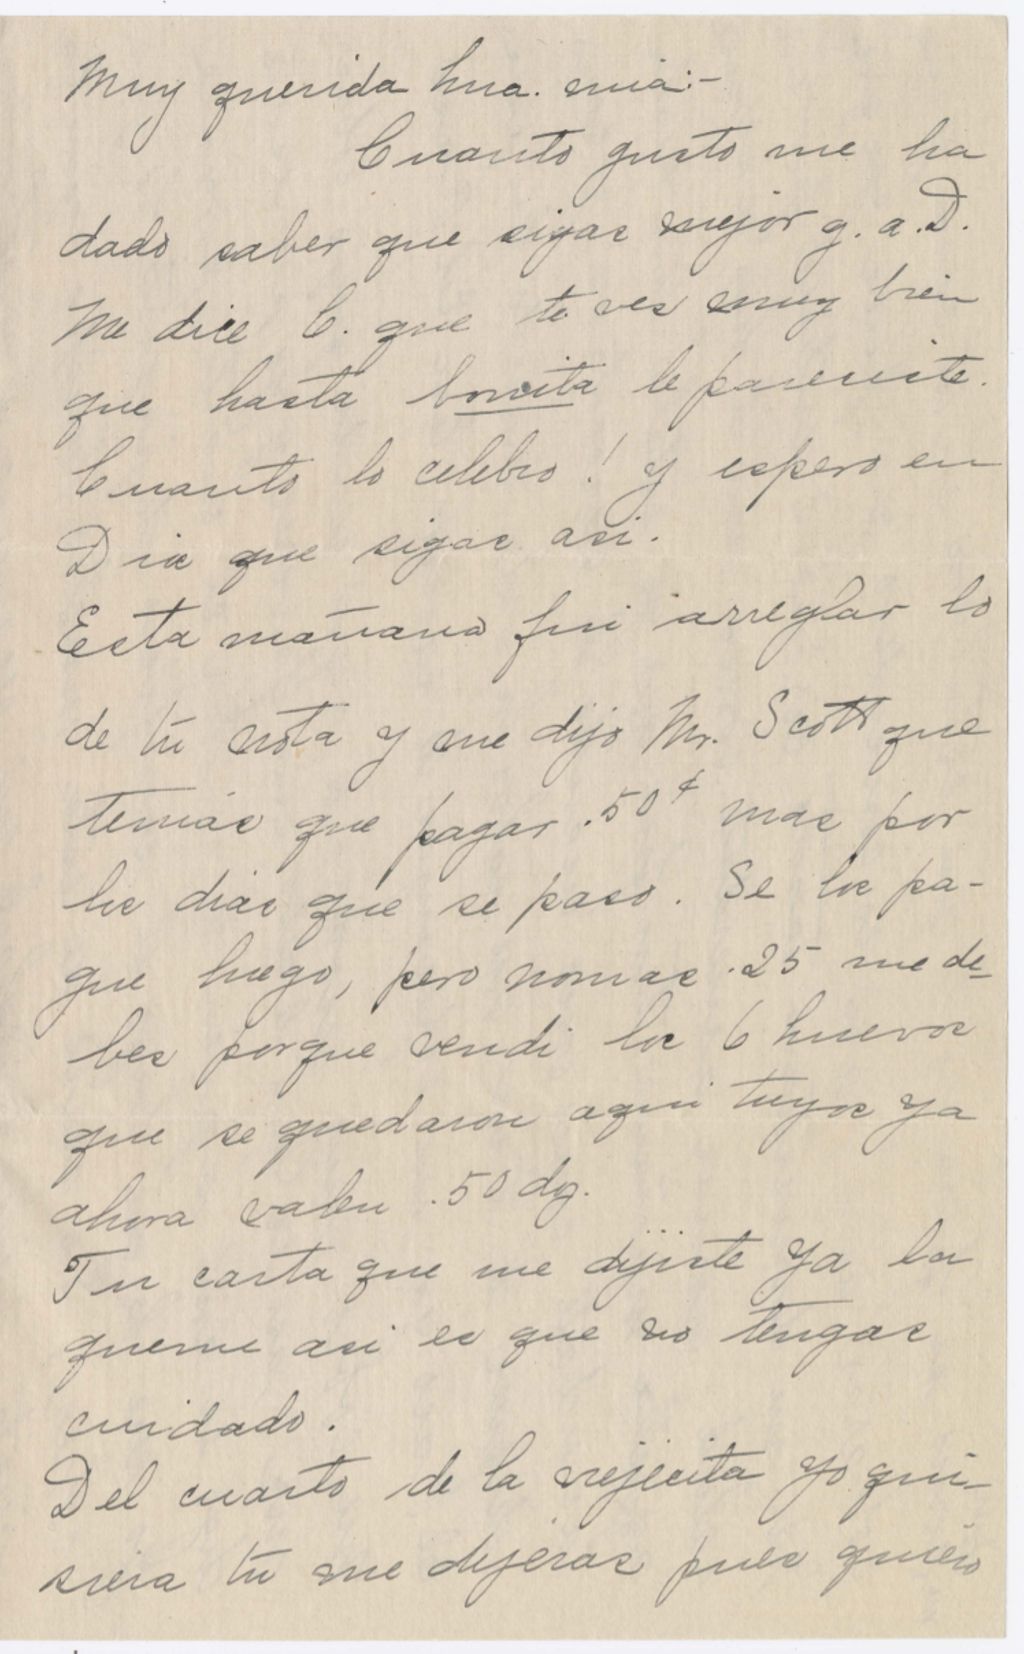 Muy querida hna. mia:-
Cuanto gusto me ha
dado saber que sigas mejor g. a. D.
Me dice C. que te ves muy bien
que hasta boncita le pareciste.
Cuanto lo celebro! y espero en
Dios que sigas asi.
Esta mañana fui arreglar lo
de tu nota y me dijo Mr. Scott que
tenias que pagar .50¢ mas por
los dias que se paso. Se los pa-
gue luego, pero nomas .25 me de-
bes porque vendi los 6 huevos
que se quedaron aqui tuyos ya
ahora valen .50 dz.
Tu carta que me dijiste ya la
queme asi es que no tengas
cuidado.
Del cuarto de la viejecita yo qui-
siera tu me dijeras pues quiero